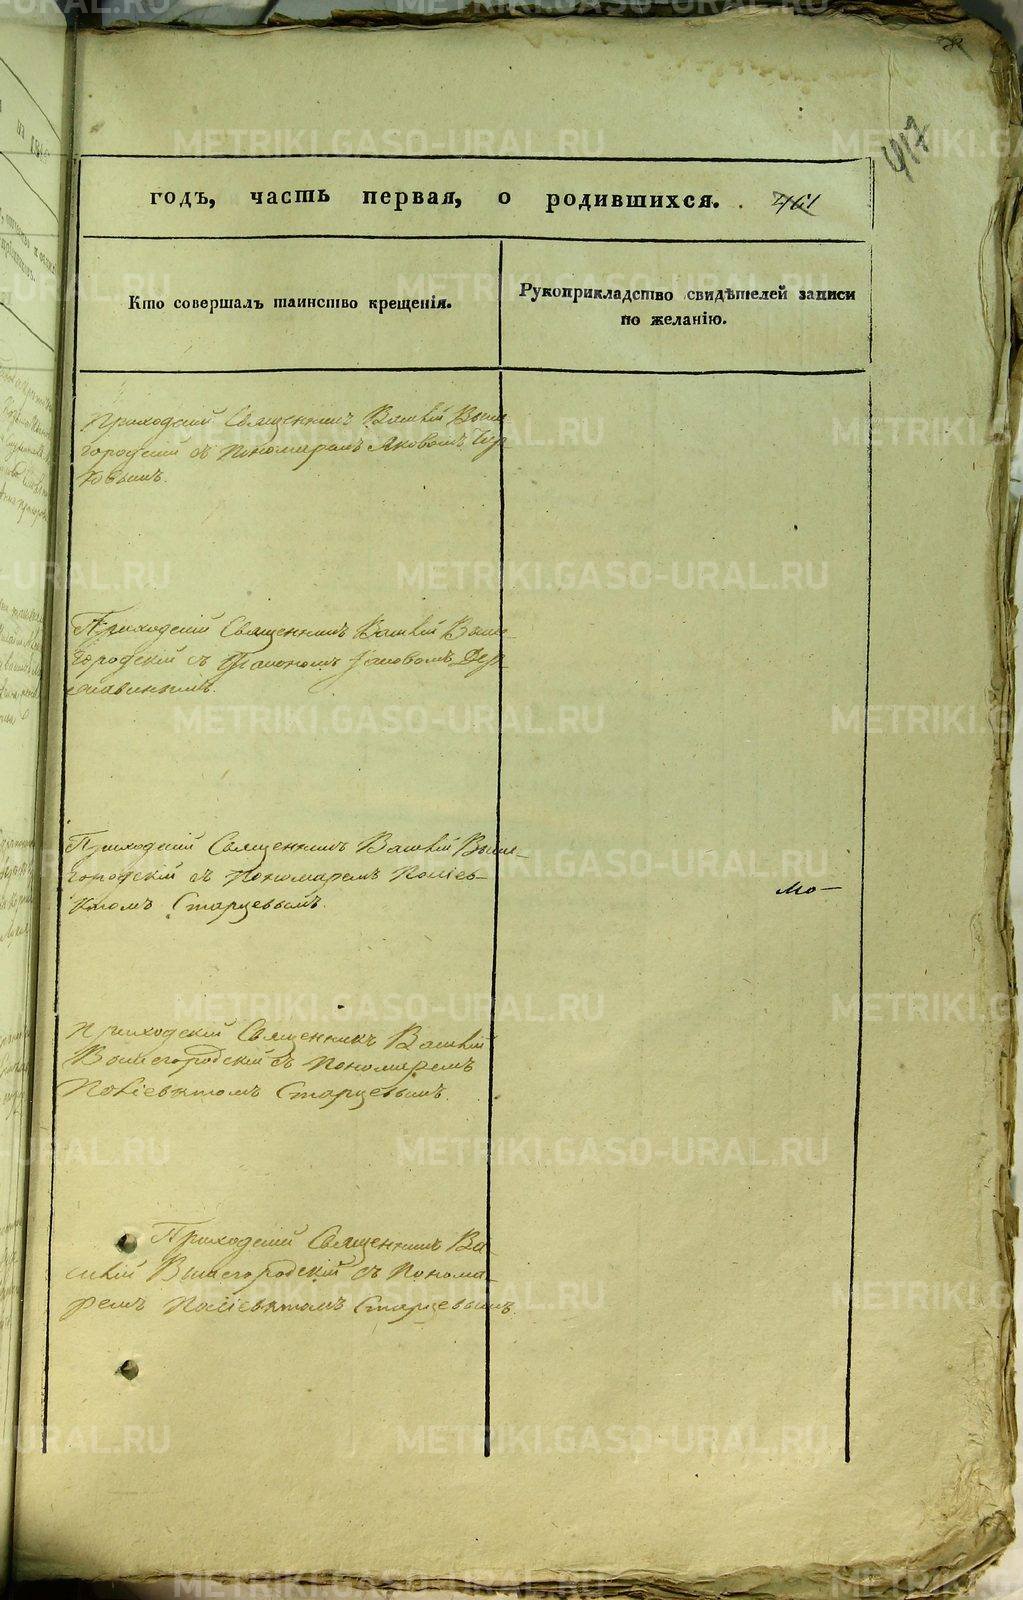 417
годъ, часть первая, о родившихся. 461
Кто совершалъ таинство крещенія.
Рукоприкладство свидѣтелей записи
по желанію.
Приходскій Священникъ Василій Выше-
городскій съ Пономаремъ Яковомъ
Приходскій Священникъ Василій Выше-
городскій съ Диакономъ Іаковомъ Дер-
жавинымъ.
Приходскій Священникъ Василій Выше-
городскій съ Пономаремъ Поліев-
ктомъ Старцевымъ.
мо-
Приходскій Священникъ Василій
Вышегородскій съ Пономаремъ
Поліевктомъ Старцевымъ.
Приходскій Священникъ Ва-
силій Вышегородскій съ Понома-
ремъ Поліевктомъ Старцевымъ.
METRIKI.GASO-URAL.RU